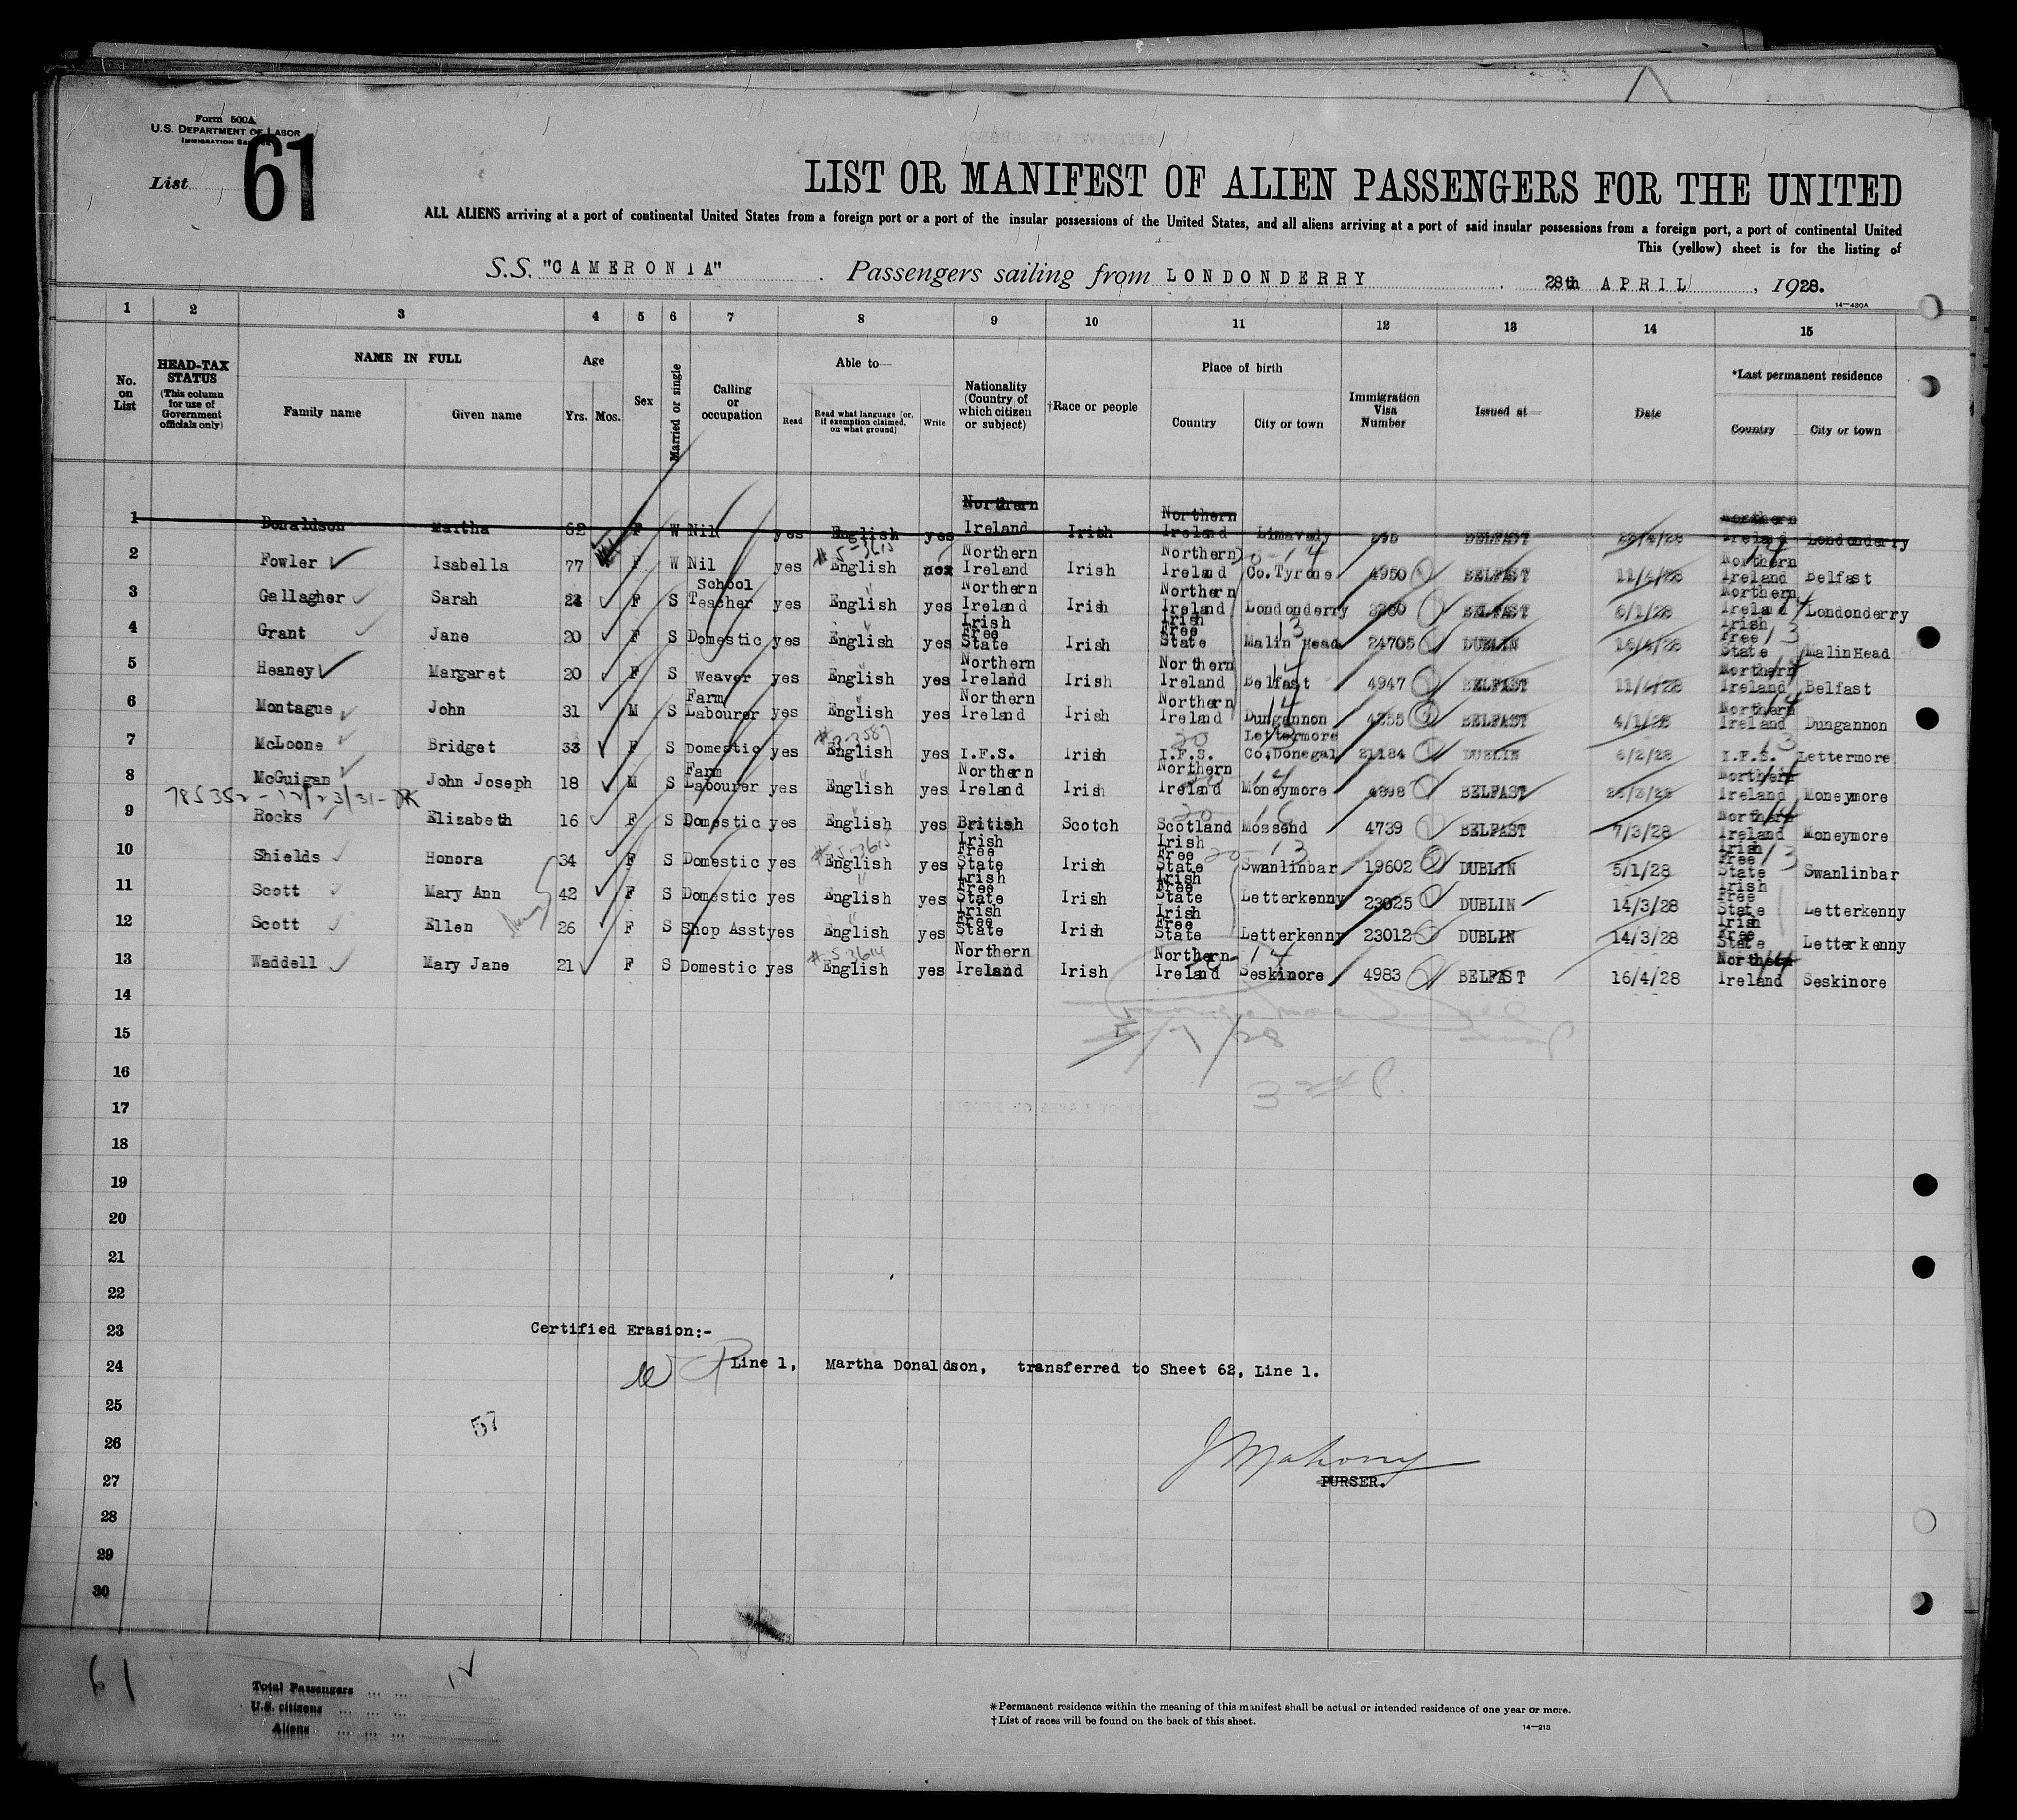 Form 500A
U.S. DEPARTMENT OF LABOR
IMMIGRATION
List 61
LIST OR MANIFEST OF ALIEN PASSENGERS FOR THE UNITED
ALL ALIENS arriving at a port of continental United States from a foreign port or a port of the insular possessions of the United States, and all aliens arriving at a port of said insular possessions from a foreign port, a port of continental United
This (yellow) sheet is for the listing of
S.S. "CAMERONIA" Passengers sailing from LONDONDERRY, 28th APRIL, 1928.
14—430A
1 2 3 4 5 6 7 8 9 10 11 12 13 14 15
No. on List
HEAD-TAX STATUS (This column for use of Government officials only)
NAME IN FULL Family name Given name
Age Yrs. Mos.
Sex
Married or single
Calling or occupation
Able to— Read Read what language [or, if exemption claimed, on what ground] Write
Nationality (Country of which citizen or subject)
†Race or people
Place of birth Country City or town
Immigration Visa Number
Issued at—
Date
*Last permanent residence Country City or town
1 Donaldson Martha 62 F W Nil yes English yes Northern Ireland Irish Northern Ireland Limavady BELFAST Northern Ireland Londonderry
2 Fowler Isabella 77 F W Nil yes English Northern Ireland Irish Northern Ireland Co. Tyrone 4950 BELFAST 11/4/28 Northern Ireland Belfast
3 Gallagher Sarah F S School Teacher yes English yes Northern Ireland Irish Northern Ireland Londonderry 3260 BELFAST 6/1/28 Northern Ireland Londonderry
4 Grant Jane 20 F S Domestic yes English yes Irish Free State Irish Irish Free State Malin Head 24705 DUBLIN 16/4/28 Irish Free State Malin Head
5 Heaney Margaret 20 F S Weaver yes English yes Northern Ireland Irish Northern Ireland Belfast 4947 BELFAST 11/4/28 Northern Ireland Belfast
6 Montague John 31 M S Farm Labourer yes English yes Northern Ireland Irish Northern Ireland Dungannon BELFAST 4/1/28 Northern Ireland Dungannon
7 McLoone Bridget 33 F S Domestic yes English yes I.F.S. Irish I.F.S. Lettermore Co. Donegal 21184 DUBLIN 6/2/28 I.F.S. Lettermore
8 McGuigan John Joseph 18 M S Farm Labourer yes English yes Northern Ireland Irish Northern Ireland Moneymore 4898 BELFAST Northern Ireland Moneymore
785352 - 12/23/31 -
9 Rocks Elizabeth 16 F S Domestic yes English yes British Scotch Scotland Mossend 4739 BELFAST 7/3/28 Northern Ireland Moneymore
10 Shields Honora 34 F S Domestic yes English yes Irish Free State Irish Irish Free State Swanlinbar 19602 DUBLIN 5/1/28 Irish Free State Swanlinbar
11 Scott Mary Ann 42 F S Domestic yes English yes Irish Free State Irish Irish Free State Letterkenny 23025 DUBLIN 14/3/28 Irish Free State Letterkenny
12 Scott Ellen 26 F S Shop Asst yes English yes Irish Free State Irish Irish Free State Letterkenny 23012 DUBLIN 14/3/28 Irish Free State Letterkenny
13 Waddell Mary Jane 21 F S Domestic yes English yes Northern Ireland Irish Northern Ireland Seskinore 4983 BELFAST 16/4/28 Northern Ireland Seskinore
14
15
16
17
18
19
20
21
22
23 Certified Erasion:-
24 Line 1, Martha Donaldson, transferred to Sheet 62, Line 1.
25
57
26 J Mahony
27 PURSER.
28
29
30
61
Total Passengers ... ... 12
U.S. citizens ... ... ...
Aliens ... ... ...
*Permanent residence within the meaning of this manifest shall be actual or intended residence of one year or more.
†List of races will be found on the back of this sheet.
14—213